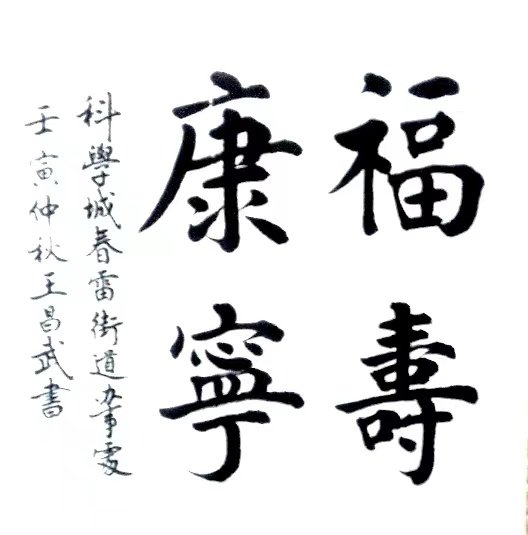 福壽
康寧
科學城春雷街道辦事處
壬寅仲秋王昌武書